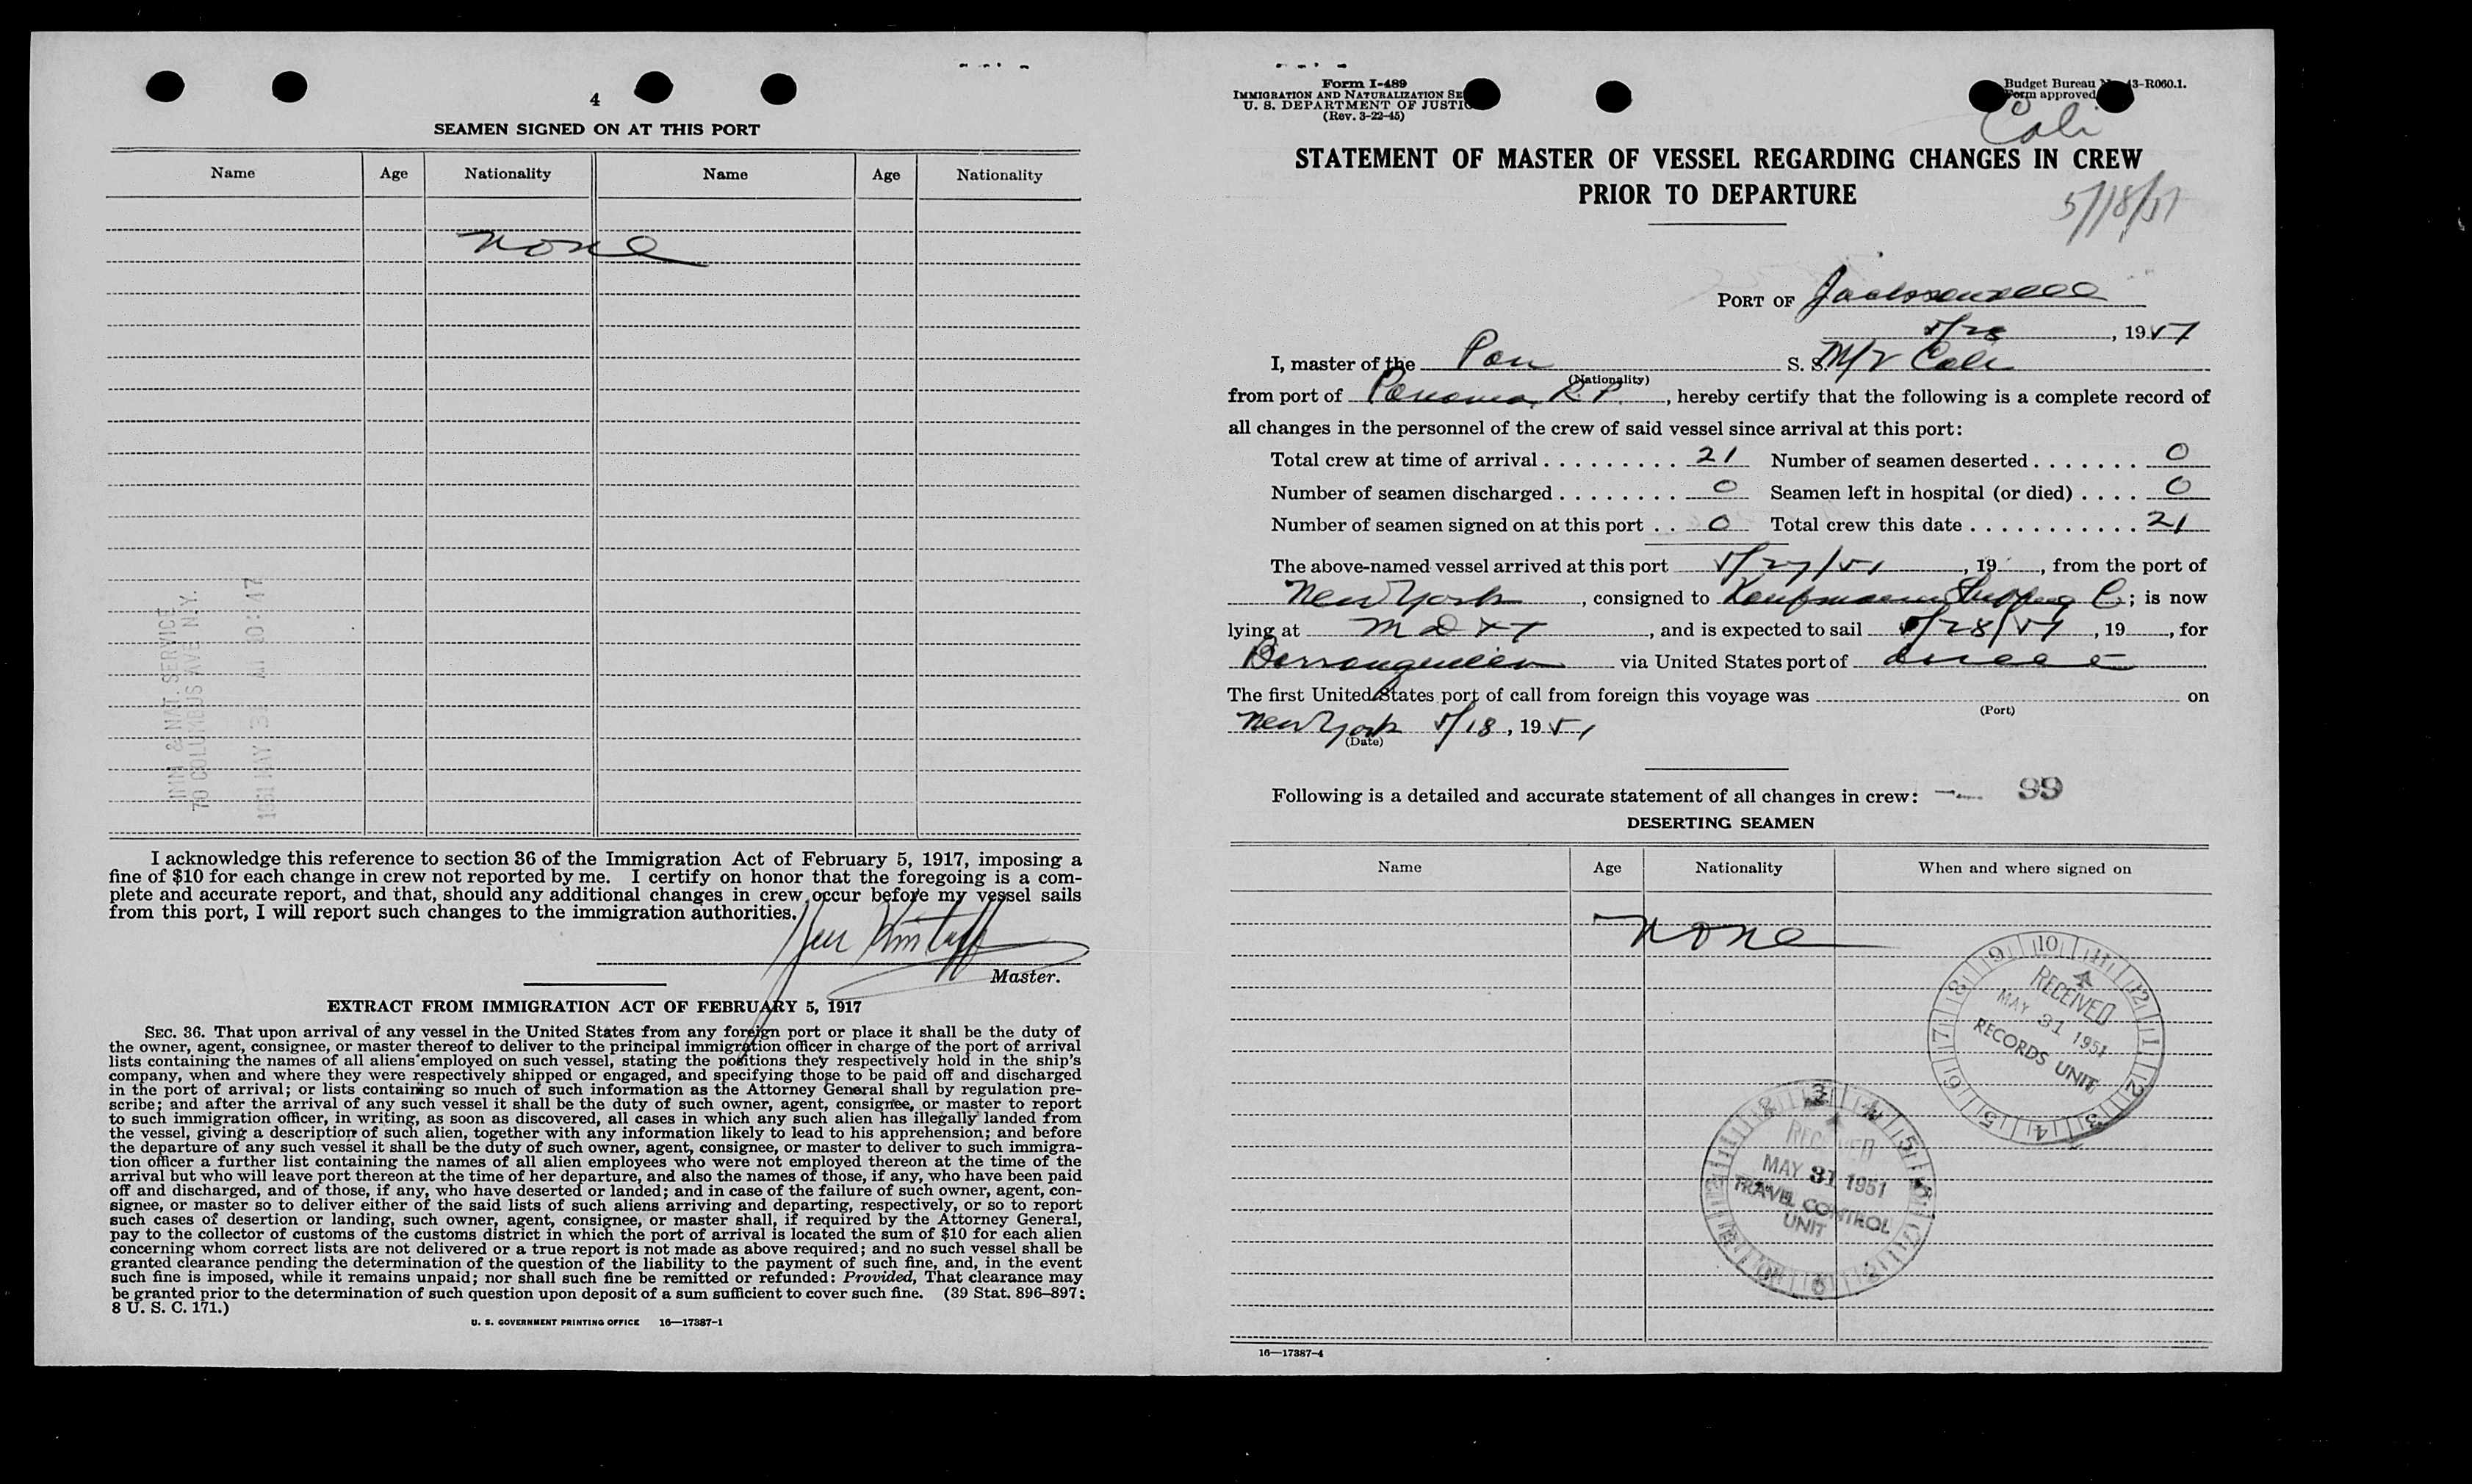 4
SEAMEN SIGNED ON AT THIS PORT
Name Age Nationality Name Age Nationality
none
IMM & NAT. SERVICE
70 COLUMBUS AVE N.Y.
1951 MAY 31 AM 10:47
I acknowledge this reference to section 36 of the Immigration Act of February 5, 1917, imposing a
fine of $10 for each change in crew not reported by me. I certify on honor that the foregoing is a com-
plete and accurate report, and that, should any additional changes in crew occur before my vessel sails
from this port, I will report such changes to the immigration authorities.
Master.
EXTRACT FROM IMMIGRATION ACT OF FEBRUARY 5, 1917
SEC. 36. That upon arrival of any vessel in the United States from any foreign port or place it shall be the duty of
the owner, agent, consignee, or master thereof to deliver to the principal immigration officer in charge of the port of arrival
lists containing the names of all aliens employed on such vessel, stating the positions they respectively hold in the ship's
company, when and where they were respectively shipped or engaged, and specifying those to be paid off and discharged
in the port of arrival; or lists containing so much of such information as the Attorney General shall by regulation pre-
scribe; and after the arrival of any such vessel it shall be the duty of such owner, agent, consignee, or master to report
to such immigration officer, in writing, as soon as discovered, all cases in which any such alien has illegally landed from
the vessel, giving a description of such alien, together with any information likely to lead to his apprehension; and before
the departure of any such vessel it shall be the duty of such owner, agent, consignee, or master to deliver to such immigra-
tion officer a further list containing the names of all alien employees who were not employed thereon at the time of the
arrival but who will leave port thereon at the time of her departure, and also the names of those, if any, who have been paid
off and discharged, and of those, if any, who have deserted or landed; and in case of the failure of such owner, agent, con-
signee, or master so to deliver either of the said lists of such aliens arriving and departing, respectively, or so to report
such cases of desertion or landing, such owner, agent, consignee, or master shall, if required by the Attorney General,
pay to the collector of customs of the customs district in which the port of arrival is located the sum of $10 for each alien
concerning whom correct lists are not delivered or a true report is not made as above required; and no such vessel shall be
granted clearance pending the determination of the question of the liability to the payment of such fine, and, in the event
such fine is imposed, while it remains unpaid; nor shall such fine be remitted or refunded: Provided, That clearance may
be granted prior to the determination of such question upon deposit of a sum sufficient to cover such fine. (39 Stat. 896–897;
8 U. S. C. 171.)
U. S. GOVERNMENT PRINTING OFFICE 16—17387-1
Form I-489
IMMIGRATION AND NATURALIZATION SE
U. S. DEPARTMENT OF JUSTIC
(Rev. 3-22-45)
Budget Bureau N 43-R060.1.
Form approved
Cali
STATEMENT OF MASTER OF VESSEL REGARDING CHANGES IN CREW
PRIOR TO DEPARTURE
5/18/51
PORT OF Jacksonville
5/28, 1951
I, master of the Pan S. S. M/V Cali
(Nationality)
from port of Panama, R.P., hereby certify that the following is a complete record of
all changes in the personnel of the crew of said vessel since arrival at this port:
Total crew at time of arrival 21 Number of seamen deserted 0
Number of seamen discharged 0 Seamen left in hospital (or died) 0
Number of seamen signed on at this port 0 Total crew this date 21
The above-named vessel arrived at this port 5/27/51, 19, from the port of
New York, consigned to Kaufmann Shipping C.; is now
lying at M D & T, and is expected to sail 5/28/51, 19, for
Barranquilla via United States port of direct
The first United States port of call from foreign this voyage was on
(Port)
New York 5/18, 1951
(Date)
Following is a detailed and accurate statement of all changes in crew: 99
DESERTING SEAMEN
Name Age Nationality When and where signed on
none
RECEIVED
MAY 31 1951
RECORDS UNIT
RECEIVED
MAY 31 1951
TRAVEL CONTROL
UNIT
16—17387-4